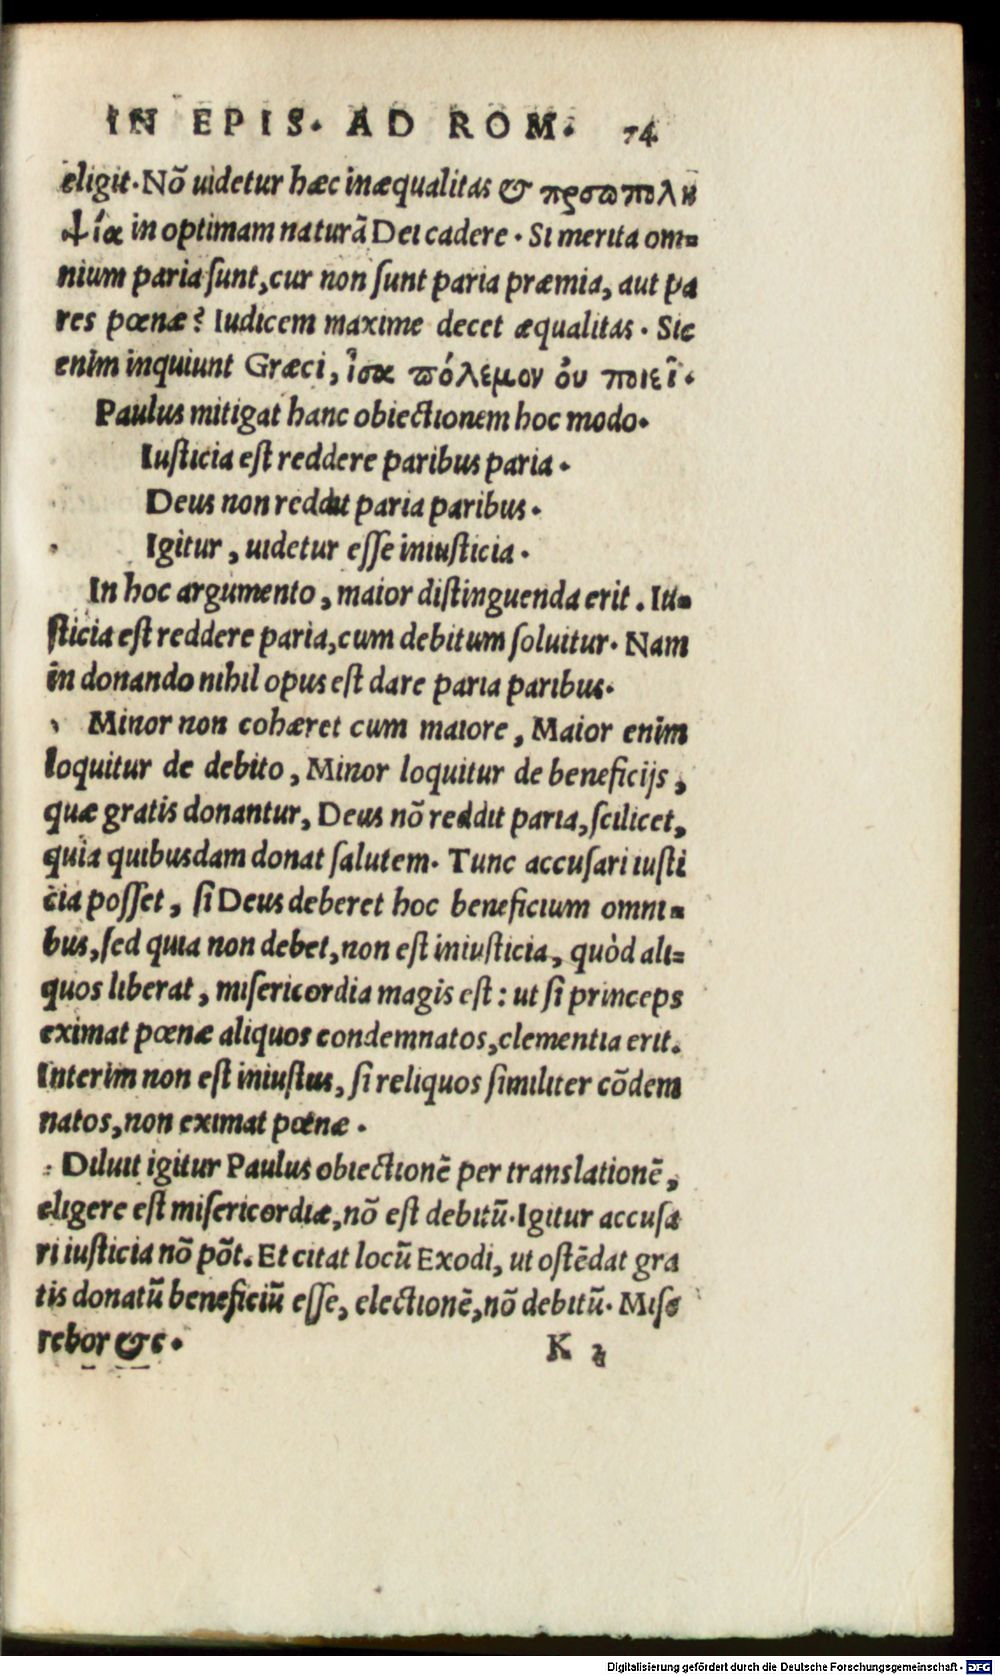 IN EPIS. AD ROM. 74
eligit. Nō uidetur hæc inæqualitas & προσωπολη
ψία in optimam naturā Dei cadere. Si merita om=
nium paria ſunt, cur non ſunt paria præmia, aut pa
res pœnæ? Iudicem maxime decet æqualitas. Sic
enim inquiunt Græci, ἶσα πόλεμον ὀυ ποιεῖ.
Paulus mitigat hanc obiectionem hoc modo.
Iuſticia eſt reddere paribus paria.
Deus non reddit paria paribus.
Igitur, uidetur eſſe iniuſticia.
In hoc argumento, maior diſtinguenda erit. Iu=
ſticia eſt reddere paria, cum debitum ſoluitur. Nam
in donando nihil opus eſt dare paria paribus.
Minor non cohæret cum maiore, Maior enim
loquitur de debito, Minor loquitur de beneficijs,
quæ gratis donantur, Deus nō reddit paria, ſcilicet,
quia quibusdam donat ſalutem. Tunc accuſari iuſti
cia poſſet, ſi Deus deberet hoc beneficium omni=
bus, ſed quia non debet, non eſt iniuſticia, quòd ali=
quos liberat, miſericordia magis eſt: ut ſi princeps
eximat pœnæ aliquos condemnatos, clementia erit.
Interim non eſt iniuſtus, ſi reliquos ſimiliter cōdem
natos, non eximat pœnæ.
Diluit igitur Paulus obiectionē per translationē,
eligere eſt miſericordiæ, nō eſt debitū. Igitur accuſa
ri iuſticia nō pōt. Et citat locū Exodi, ut oſtēdat gra
tis donatū beneficiū eſſe, electionē, nō debitū. Miſe
rebor &c. K 2
Digitalisierung gefördert durch die Deutsche Forschungsgemeinschaft - DFG